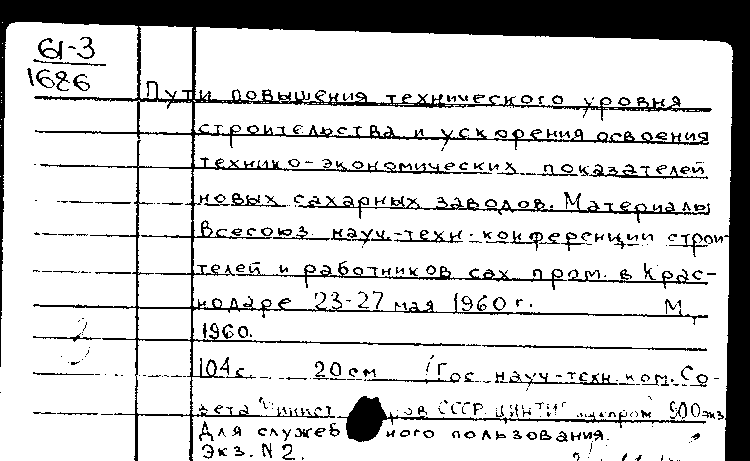 61-3
1686
Пути повышения технического уровня
строительства и ускорения освоения
технико-экономических показателей
новых сахарных заводов. Материалы
Всесоюз. науч.-техн. конференции строи-
телей и работников сах. пром. в Крас-
нодаре 23-27 мая 1960 г. М.,
1960.
104 с. 20 см (Гос. науч.-техн. ком. Со-
вета Минист ров СССР. ЦИНТИ 500 экз.
Для служеб ного пользования.
Экз. N 2.